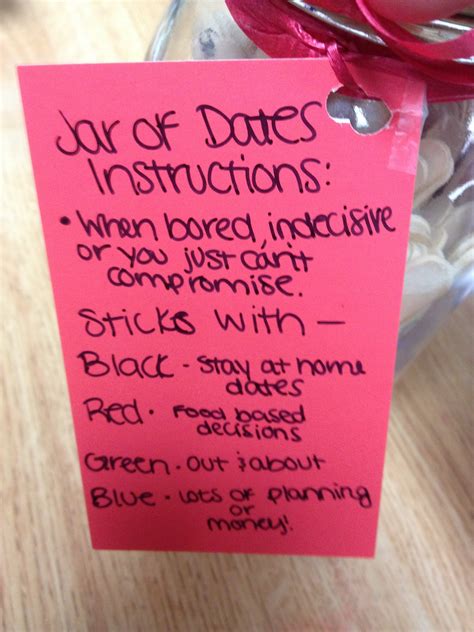 Jar of Dates
Instructions:
• When bored, indecisive
or you just can't
compromise.
Sticks with —
Black - stay at home
dates
Red - Food based
decisions
Green - out & about
Blue - Lots of planning
or
money!